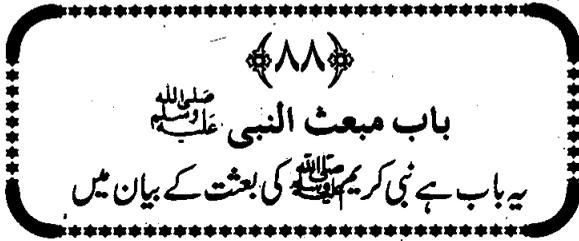 ﴿۸۸﴾
باب مبعث النبی صلى الله عليه وسلم
یہ باب ہے نبی کریم صلى الله عليه وسلم کی بعثت کے بیان میں